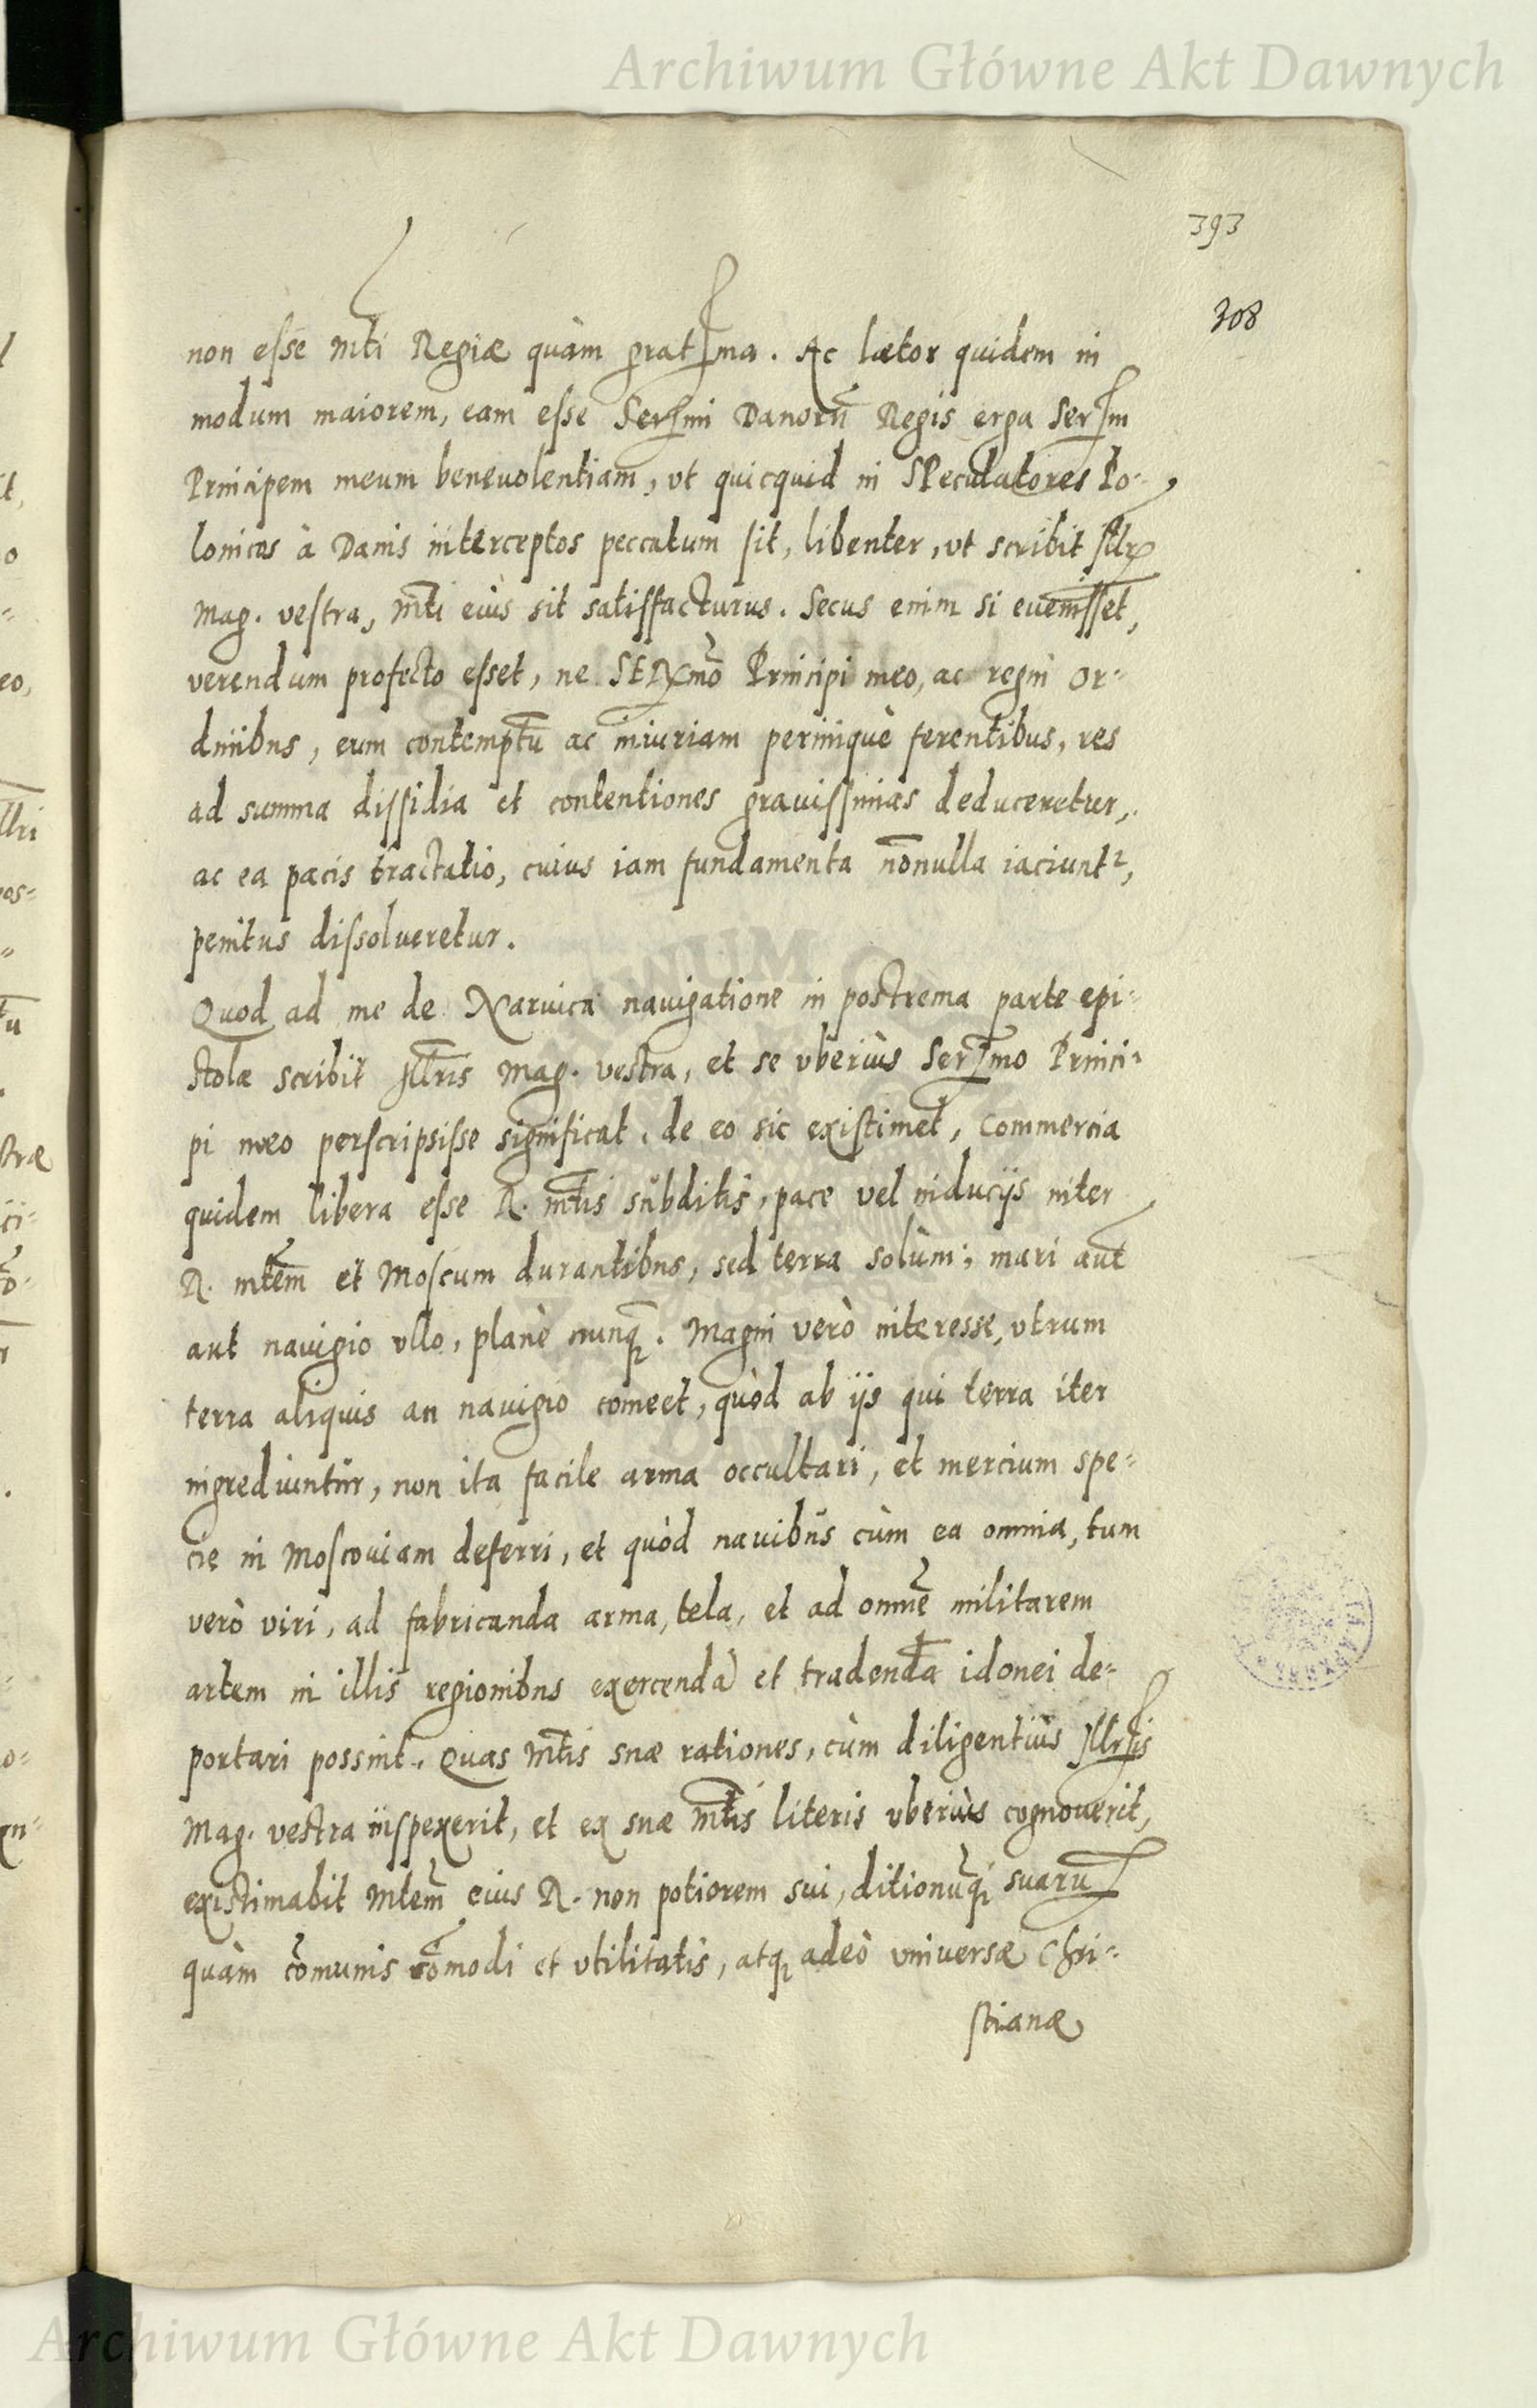 Archiwum Główne Akt Dawnych
393
308
non esse Mti Regiæ quàm gratma. Ac lætor quidem in
modum maiorem, eam esse Sermi Danorū Regis erga Serm
Principem meum beneuolentiam, vt quicquid in Speculatores Po-
lonicos à Danis interceptos peccatum sit, libenter, vt scribit Illris
Mag. vestra, Mti eius sit satisfacturus. Secus enim si euenisset,
verendum profecto esset, ne Sermo Principi meo, ac regni or-
dinibus, eum contemptū ac iniuriam periniquè ferentibus, res
ad summa dissidia et contentiones grauissimas deduceretur,
ac ea pacis tractatio, cuius iam fundamenta nōnulla iaciuntr,
penitus dissolueretur.
Quod ad me de Narvica navigatione in postrema parte epi-
stolæ scribit Illris Mag. vestra, et se vberiùs Sermo Princi-
pi meo perscripsisse significat, de eo sic existimet, Commercia
quidem libera esse R. Mtis subditis, pace vel inducijs inter
R. Mtem et Moscum durantibus, sed terra solùm; mari aut
aut navigio vllo, planè nunq. Magni verò interesse, vtrum
terra aliquis an navigio comeet, quòd ab ijs qui terra iter
ingrediuntur, non ita facile arma occultari, et mercium spe-
cie in Moscouiam deferri, et quòd nauibus cùm ea omnia, tum
verò viri, ad fabricanda arma, tela, et ad omnē militarem
artem in illis regionibus exercendā et tradendā idonei de-
portari possint. Quas Mtis suæ rationes, cùm diligentiùs Illris
Mag. vestra inspexerit, et ex suæ Mtis literis vberiùs cognouerit,
existimabit Mtem eius R. non potiorem sui, ditionūq suarū
quàm cōmunis cōmodi et vtilitatis, atq adeò vniuersæ Chri-
stianæ
Archiwum Główne Akt Dawnych